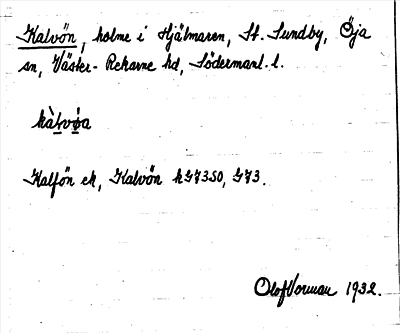 Kalvön, holme i Hjälmaren, St. Sundby, Öja
sn, Väster-Rekarne hd, Södermanl. l.
kàlvø̀a
Kalfön ek, Kalvön hG7350, G73.
Olof Vorman 1932.